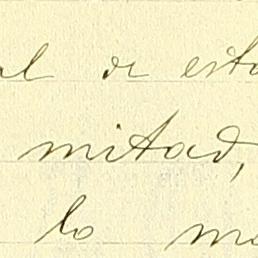 al de esta
mitad,
lo me